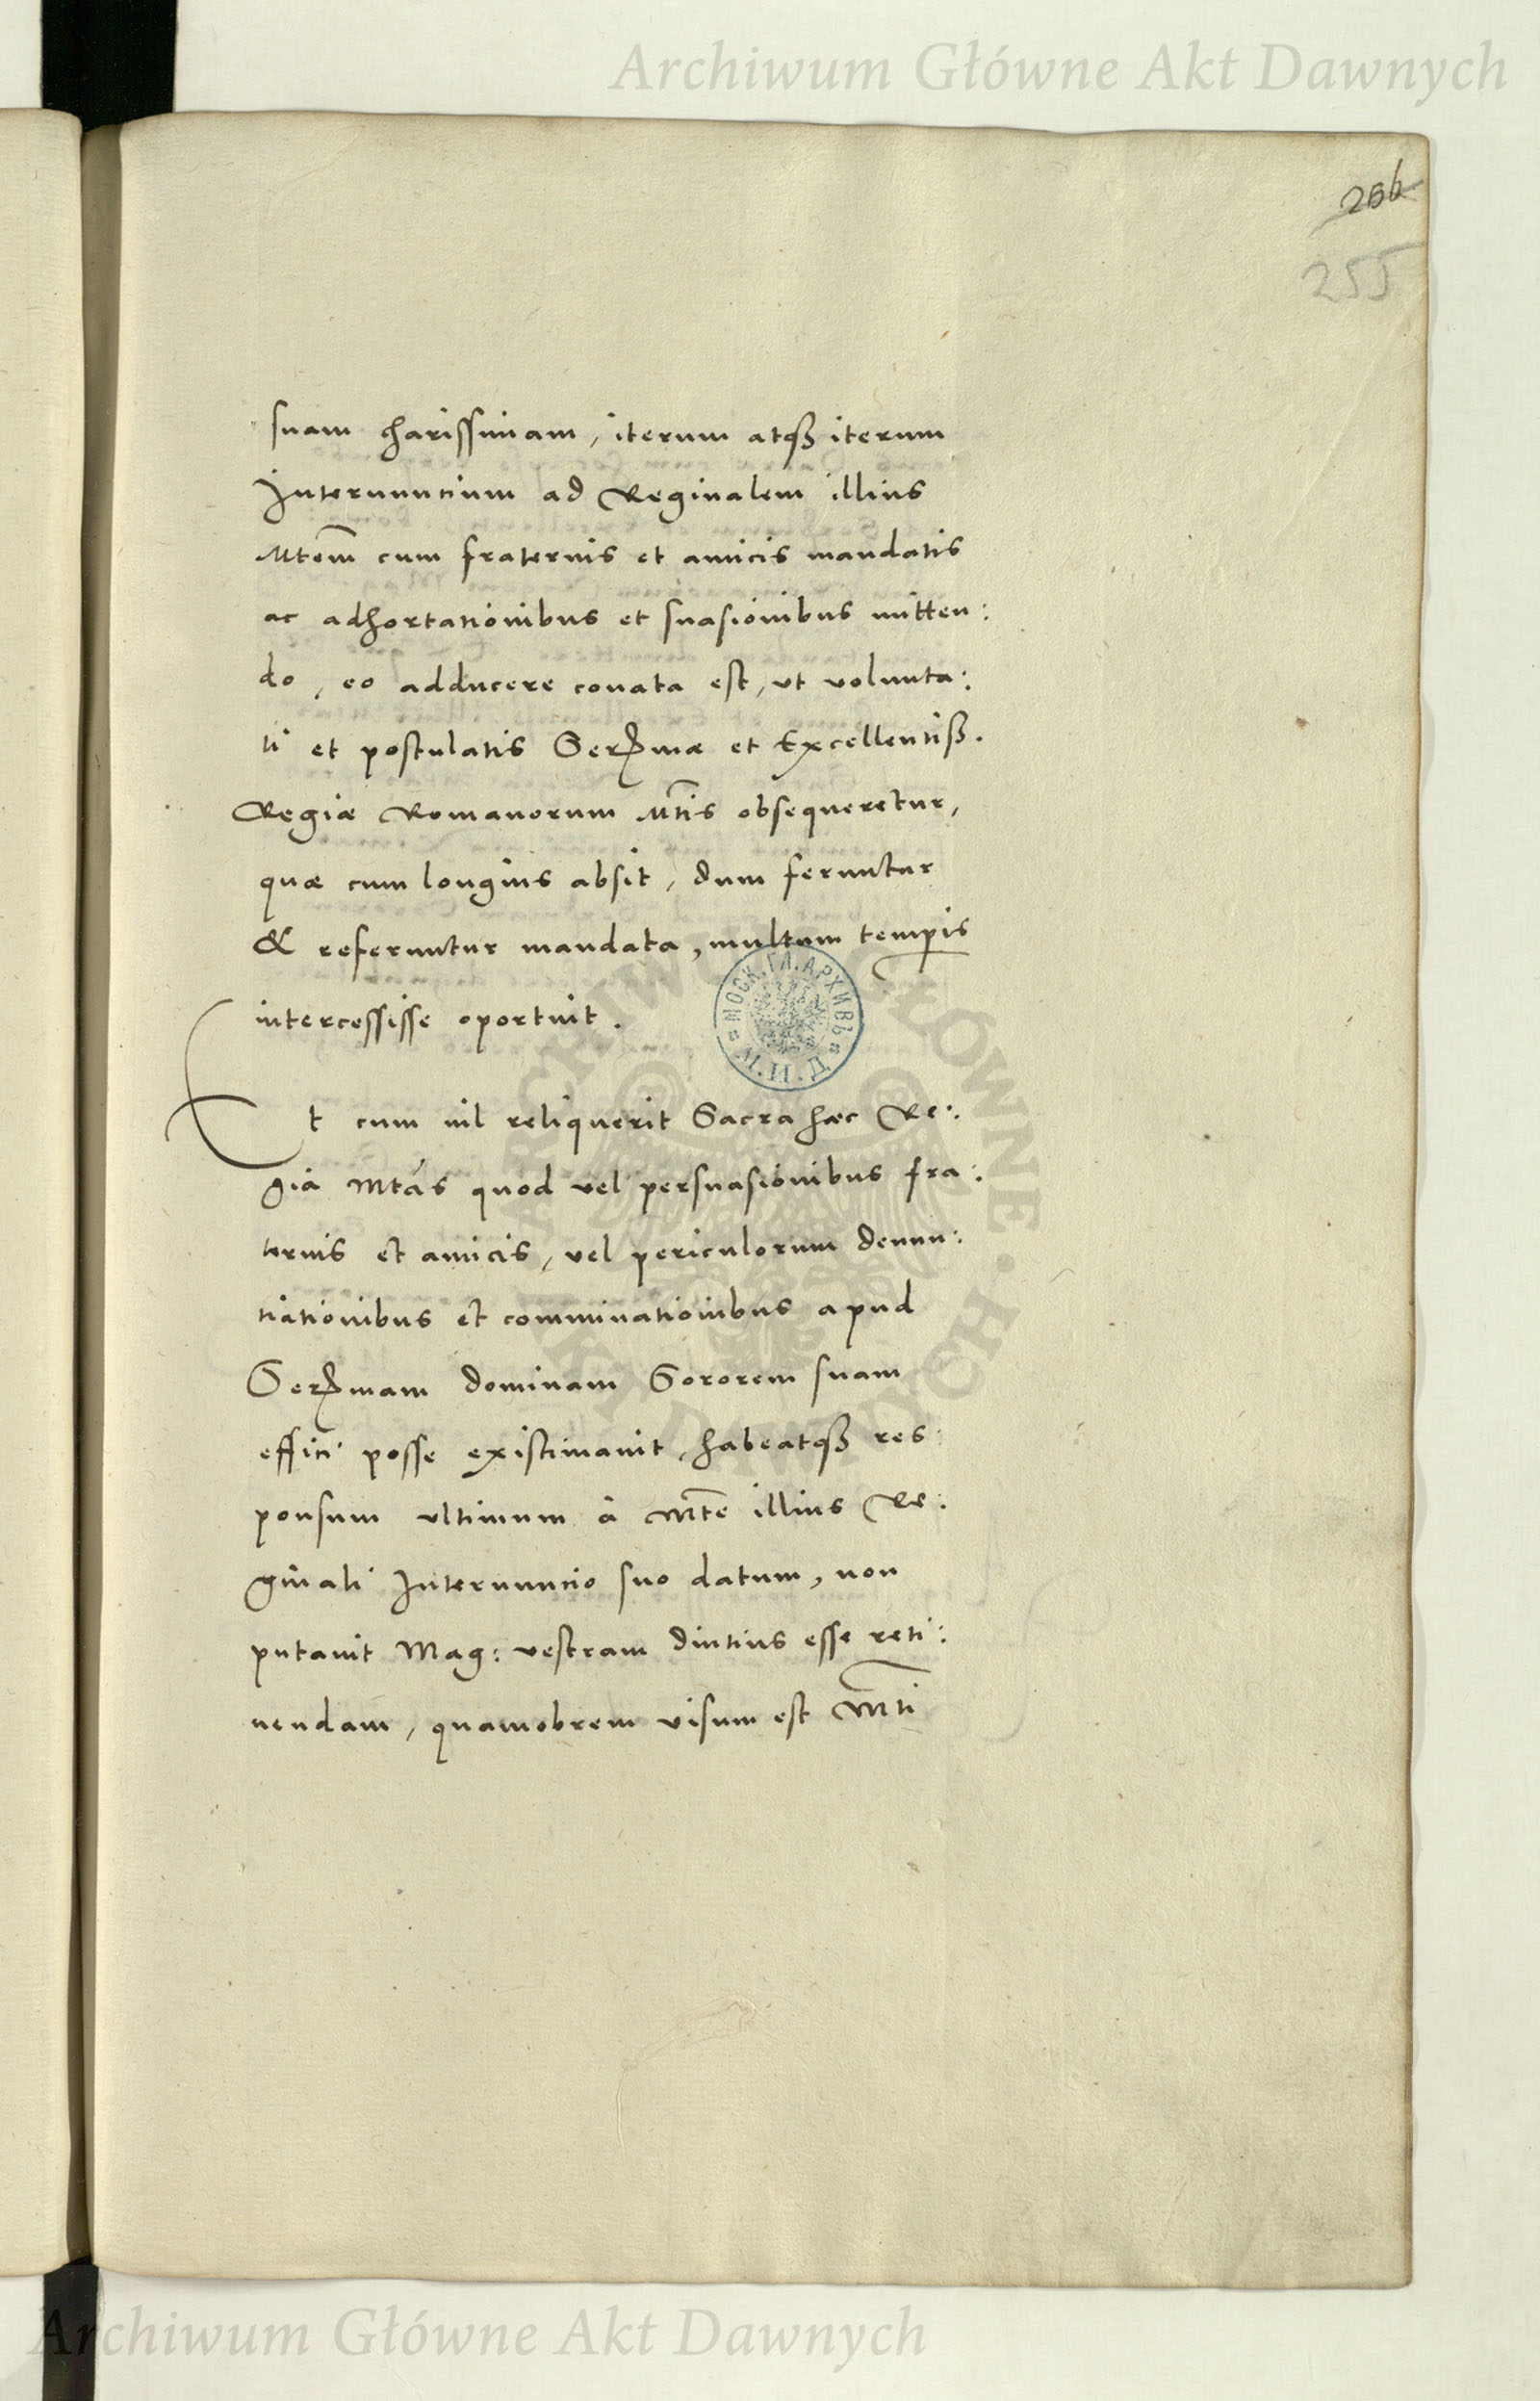 Archiwum Główne Akt Dawnych
256
255
suam charissimam, iterum atqꜗ iterum
Internuncium ad Reginalem illius
Mtem̄ cum fraternis et amicis mandatis
ac adhortationibus et suasionibus mitten:
do, eo adducere conata est, vt volunta:
ti et postulatis Serᵐmæ et Excellentiß.
Regiæ Romanorum Mtis obsequeretur,
quæ cum longius absit, dum feruntur
& referuntur mandata, multum temp̲is
intercessisse oportuit.
Et cum nil reliquerit Sacra hæc Re:
gia Mtas quod vel persuasionibus fra:
ternis et amicis, vel periculorum denun:
tiationibus et comminationibus apud
Serᵐmam dominam Sororem suam
effici posse existimauit, habeatqꜗ res:
ponsum vltimum à Mte illius Re:
ginali Internuncio suo datum, non
putauit Mag: vestram diutius esse reti:
nendam, quamobrem visum est Mti
МОСК.ГЛ.АРХИВЪ М.И.Д.
ARCHIWUM GŁÓWNE AKT DAWNYCH
Archiwum Główne Akt Dawnych